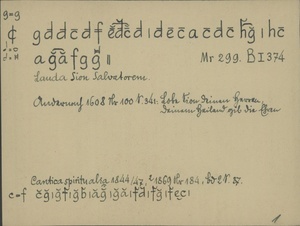 g=g
¢ g d d c d f e d c d ı d e c a c d c h g ı h c
a g a f g g ‖ Nr 299. B I 374
Lauda Sion Salvatorem.
Andernach 1608 Nr 100 V. 341: Lob Sion deinen Herren,
deinem Heiland gib die Ehren
Cantica spiritualia 1844/47, 1869 Nr 184. Bd 2 N. 57.
c=f c g ı g f ı g h ı a g ı g a ı f d ı f g ı f e c ı
1